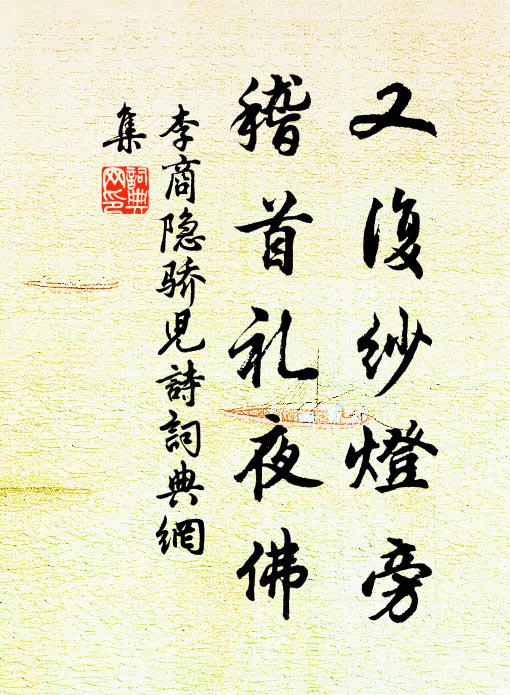 又復紗燈旁
稽首礼夜佛
李商隐骄児詩詞典網
集
詞典网印